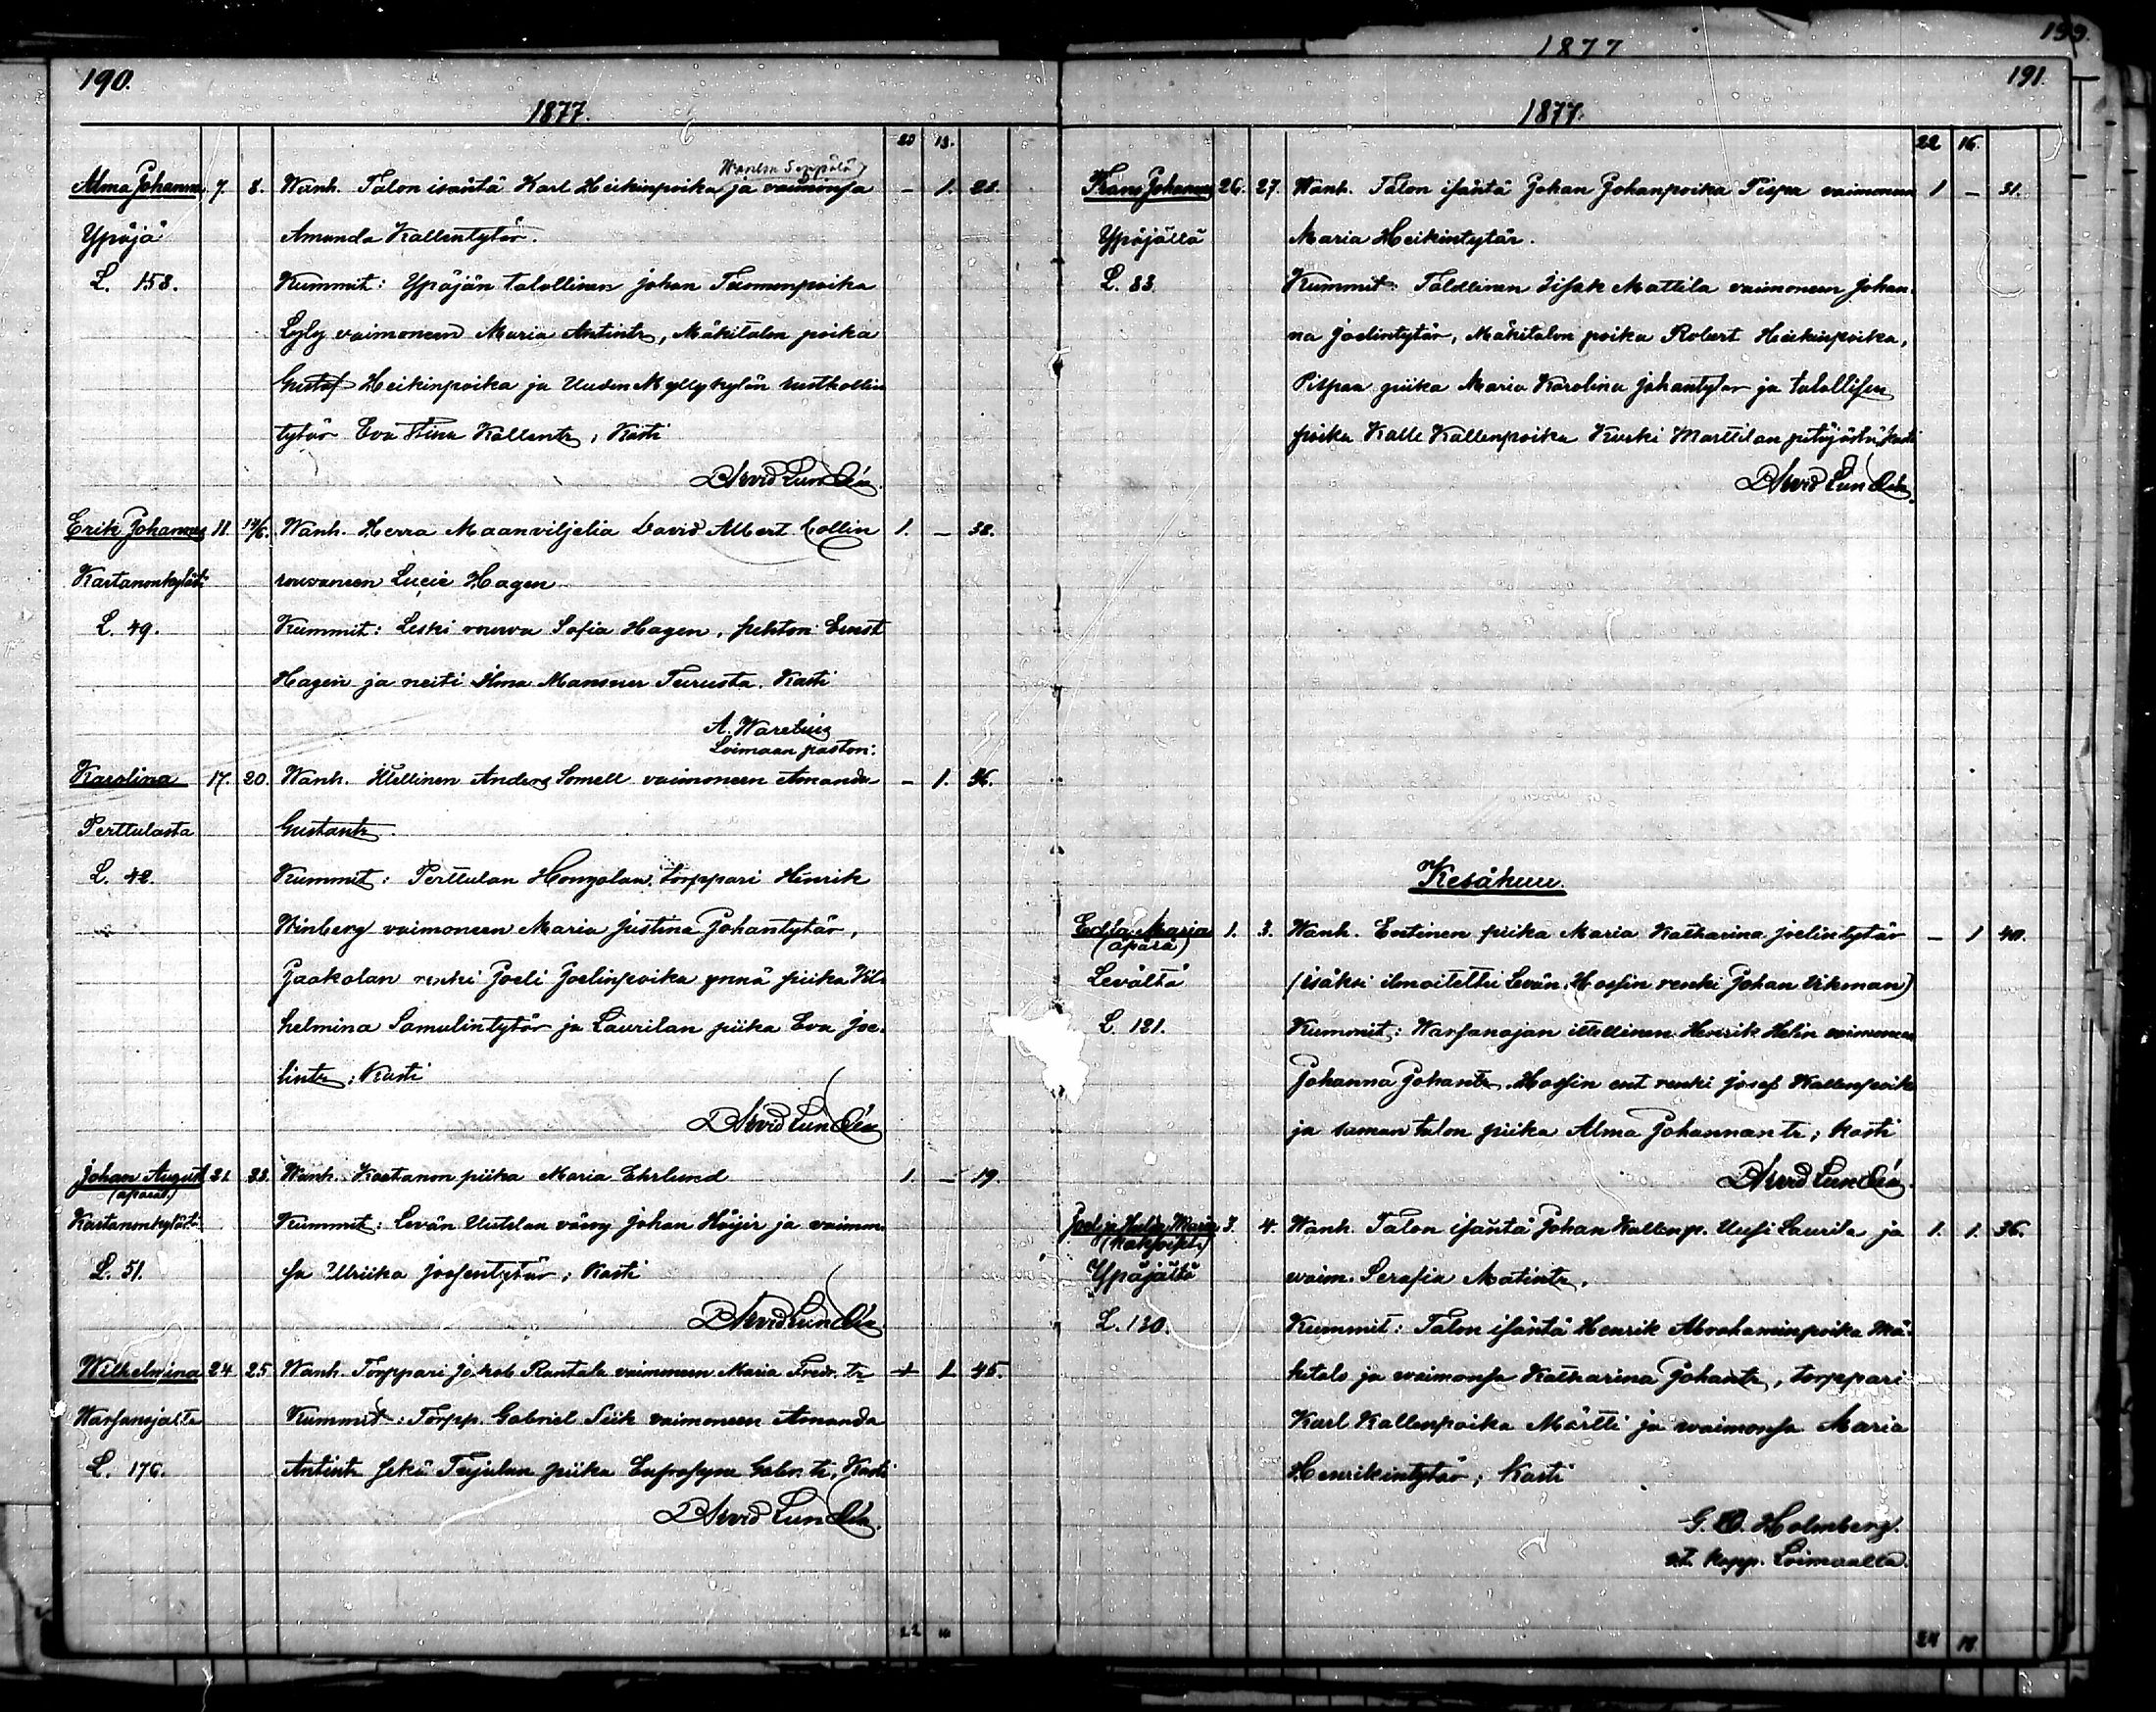 190.
1877.
20 13.
Wanhan Seppälä
Alma Johanna 7. 8. Wanh. Talon isäntä Karl Heikinpoika ja vaimonsa - 1. 23.
Ypäjä Amanda Kallentytär.
L. 158. Kummit: Ypäjän talollinen Johan Tuomenpoika
Lyly vaimoneen Maria Antintr, Mäkitalon poika
Gustaf Heikinpoika ja Uuden Myllykylän rustkollin
tytär Eva Stina Kallentr; Kasti
Arvid Lundén.
Erik Johannes 11. 14/6. Wanh. Herra Maanviljelia David Albert Collin 1. - 38.
Kartanonkylästä rouvaneen Lucie Hagen
L. 49. Kummit: Leski rouva Sofia Hagen, pehtori Ernst
Hagen ja neiti Ilma Mansner Turusta. Kasti
A. Warelius
Loimaan pastori:
Karolina 17. 20. Wanh. Itellinen Anders Somell vaimoneen Amanda - 1. 36.
Perttulasta Gustantr.
L. 42. Kummit: Perttulan Hongolan torppari Henrik
Winberg vaimoneen Maria Justina Johantytär,
Jaakolan renki Joeli Joelinpoika ynnä piika Vil-
helmina Samulintytär ja Laurilan piika Eva Joe-
lintr; Kasti
Arvid Lundén
Johan August 21. 23. Wanh. Kartanon piika Maria Ehrlund 1. - 19.
(äpärä.)
Kartanonkylästä Kummit: Levän Uutelan vävy Johan Höijer ja vaimon-
L. 51. sa Ulriika Joosentytär; Kasti
Arvid Lundén
Wilhelmina 24 25 Wanh. Torppari Jakob Rantala vaimoneen Maria Fred. tr 1 45.
Warsanojalta Kummit: Torpp. Gabriel Siik vaimoneen Amanda
L. 176. Antintr sekä Tujulan piika Eufrosyne Gabr. tr, Kasti
Arvid Lundén.
22
1877
199.
191.
1877.
22 16.
Frans Johannes 26. 27. Wanh. Talon isäntä Johan Johanpoika Pispa vaimoneen 1 - 31.
Ypäjältä Maria Heikintytär.
L. 83 Kummit: Talollinen Iisak Mattila vaimoneen Johan-
na Joelintytär, Mäkitalon poika Robert Heikinpoika,
Pispan piika Maria Karolina Johantytär ja talollisen
poika Kalle Kallenpoika Kurki Marttilan pitäjästä, Kasti
Arvid Lundén.
Kesäkuu.
Edla Maria 1. 3. Wanh. Entinen piika Maria Katharina Joelintytär - 1 40.
(äpärä)
Levältä (isäksi ilmoitettu Levän Hossin renki Johan Vikman)
L 131. Kummit: Warsanojan itsellinen Henrik Helin vaimoneen
Johanna Johantr. Hossin ent renki Josef Kallenpoika
ja saman talon piika Alma Johannantr; Kasti
Arvid Lundén.
Joel ja Hulda Maria 3. 4. Wanh. Talon isäntä Johan Kallenp. Uusi Laurila ja 1. 1. 36.
(Kaksoiset)
Ypäjältä vaim. Serafia Matintr.
L. 130. Kummit: Talon isäntä Henrik Abrahaminpoika Mä-
kitalo ja vaimonsa Katharina Johantr, torppari
Karl Kallenpoika Märtti ja vaimonsa Maria
Henrikintytär; Kasti
G. O. Holmberg.
vt. Kapp. Loimaalla.
24 18